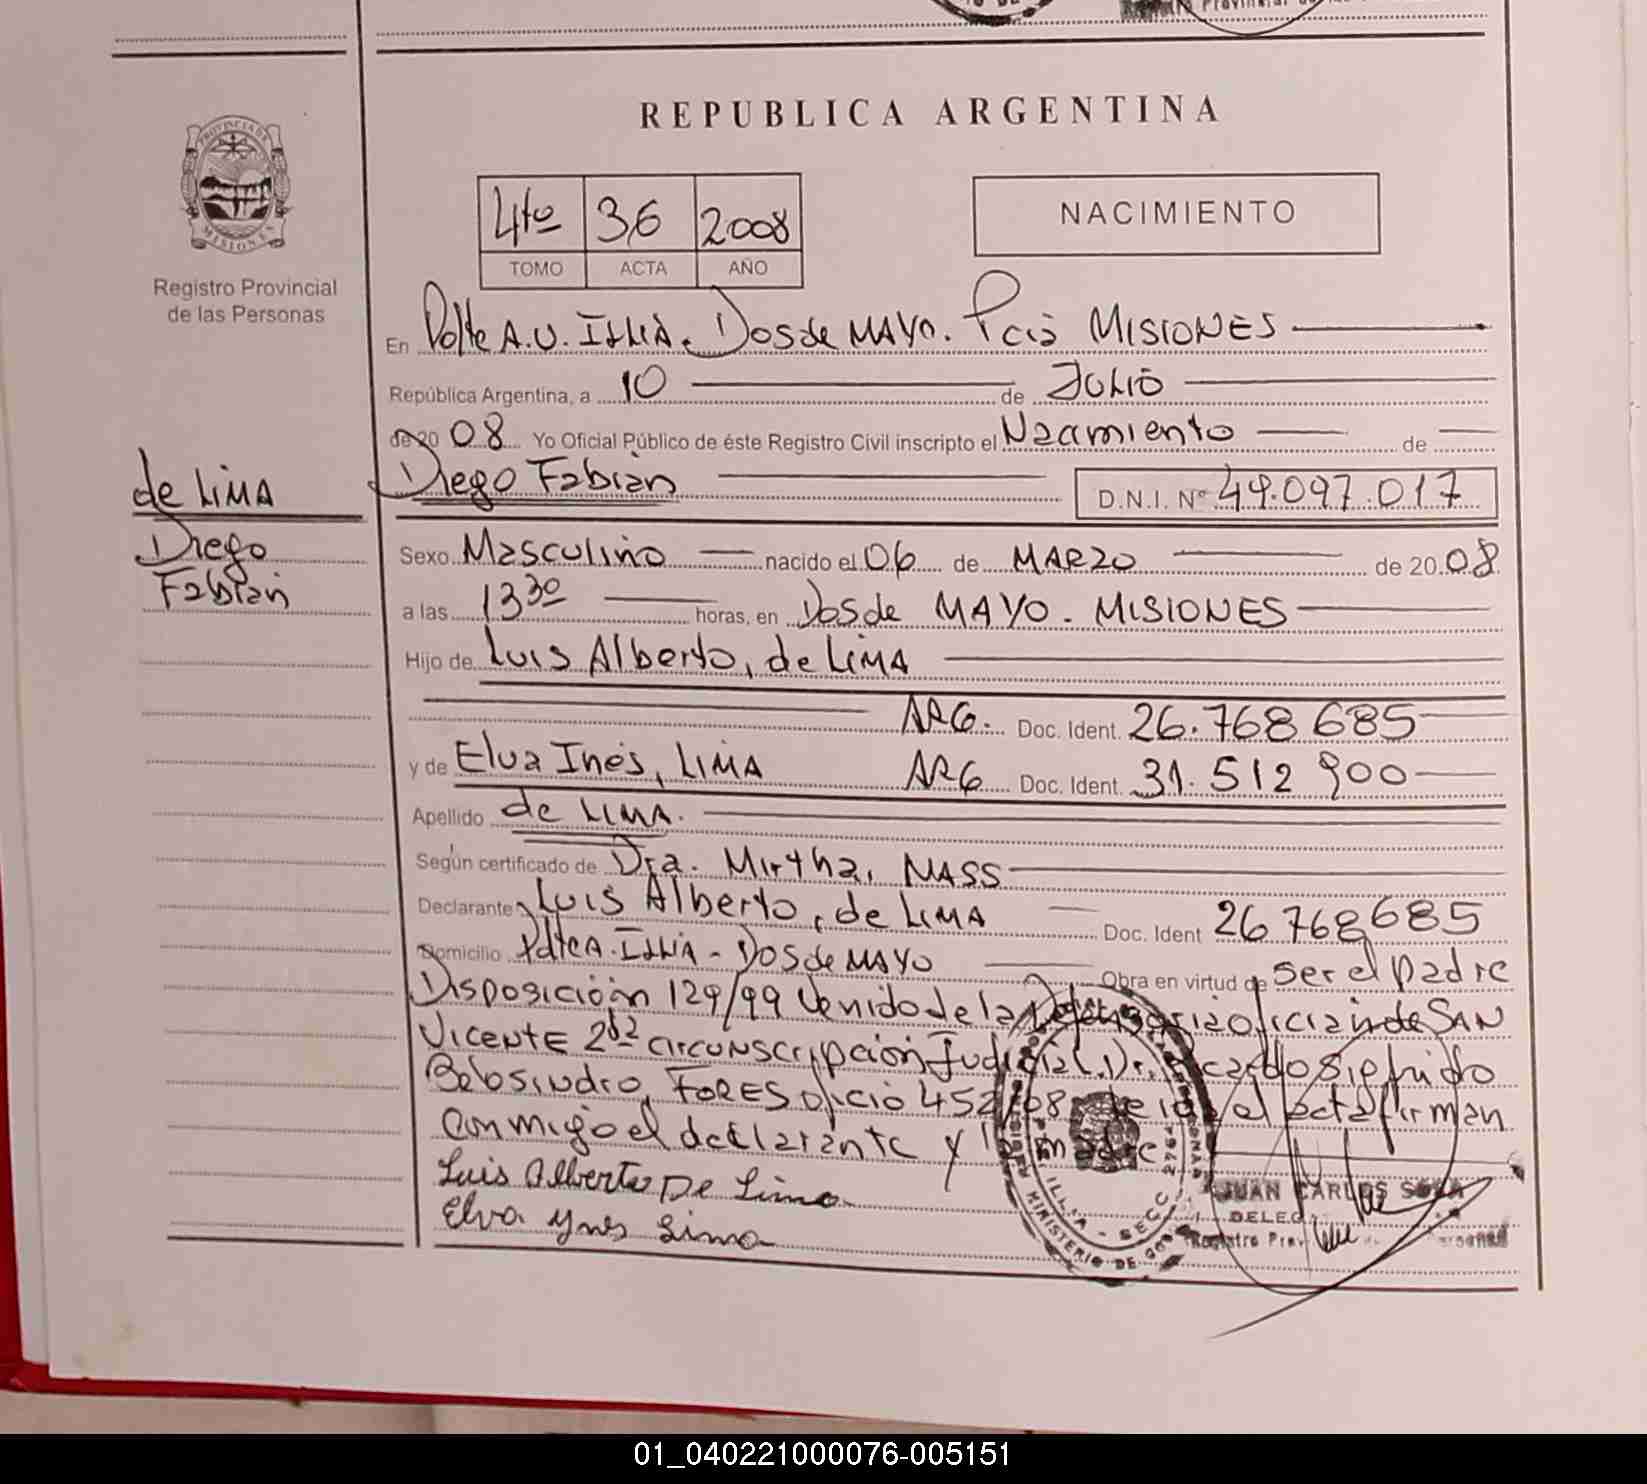 REPUBLICA ARGENTINA
4to 36 2008
TOMO ACTA AÑO
NACIMIENTO
PROVINCIA DE MISIONES
Registro Provincial
de las Personas
En Pdte A.U. ILLIA. Dos de MAYO. Pcia MISIONES
República Argentina, a 10 de JULIO
de 20 08 Yo Oficial Público de éste Registro Civil inscripto el Nacimiento de
Diego Fabián D.N.I. Nº 49.097.017
de LIMA
Diego
Fabián
Sexo Masculino nacido el 06 de MARZO de 20 08
a las 13 30 horas, en Dos de MAYO. MISIONES
Hijo de Luis Alberto, de LIMA
ARG. Doc. Ident. 26.768 685
y de Elva Inés, LIMA ARG Doc. Ident. 31.512 900
Apellido de LIMA.
Según certificado de Dra. Mirtha, MASS
Declarante Luis Alberto, de LIMA Doc. Ident 26 768685
Domicilio Pdte A. ILLIA - Dos de MAYO Obra en virtud de ser el padre
Disposición 129/99 Venido de la oficia de SAN
VICENTE 2da circunscripción Judicial. Dr.
FORES oficio 452/08 el acta firman
conmigo el declarante y la madre
Luis Alberto De Lima
Elva Ynes Lima
JUAN CARLOS SOSA
DELEG
Registro Prov
MINISTERIO DE GOB
01_040221000076-005151